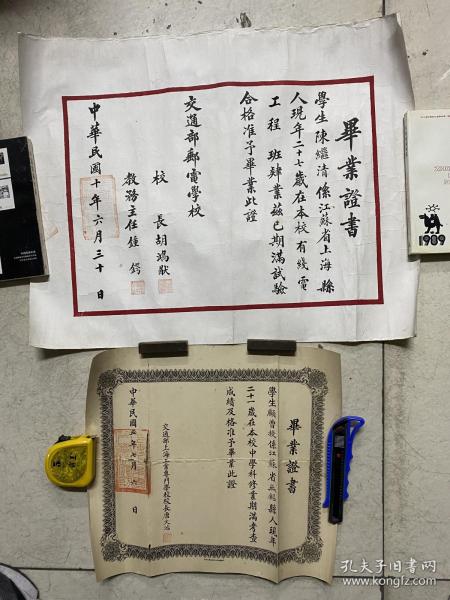 畢業證書
學生陳繼清係江蘇省上海縣
人現年二十七歲在本校有綫電
工程 班肄業茲已期滿試驗
合格准予畢業此證
交通部郵電學校
校 長胡鴻猷
教務主任鍾鍔
中華民國十年六月三十 日
畢業證書
學生顧曾授係江蘇省無錫縣人現年
二十一歲在本校中學科修業期滿考查
成績及格准予畢業此證
交通部上海工業專門學校校長唐文治
中華民國五年七月六日
1989
孔夫子旧书网
www.kongfz.com